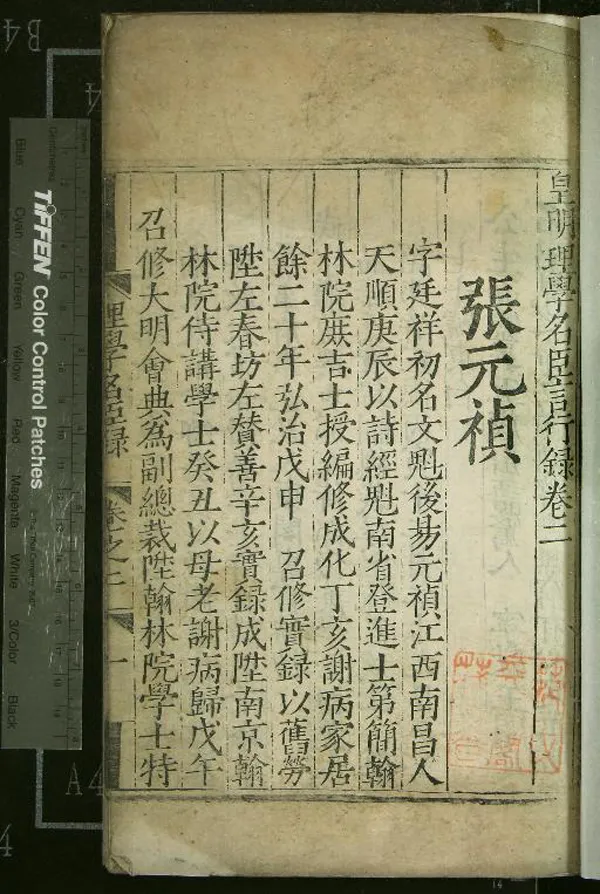 皇明理學名臣言行錄卷二
張元禎
字廷祥初名文魁後昜元禎江西南昌人
天順庚辰以詩經魁南省登進士第簡翰
林院庶吉士授編修成化丁亥謝病家居
餘二十年弘治戊申 召修實録以舊勞
陞左春坊左賛善辛亥實録成陞南京翰
林院侍講學士癸丑以母老謝病歸戊午
召修大明會典為副總裁陞翰林院學士特
理學名臣録 卷之二 一
TIFFEN Color Control Patches
Blue Cyan Green Yellow Red Magenta White 3/Color Black
Centimetres
B4
A4